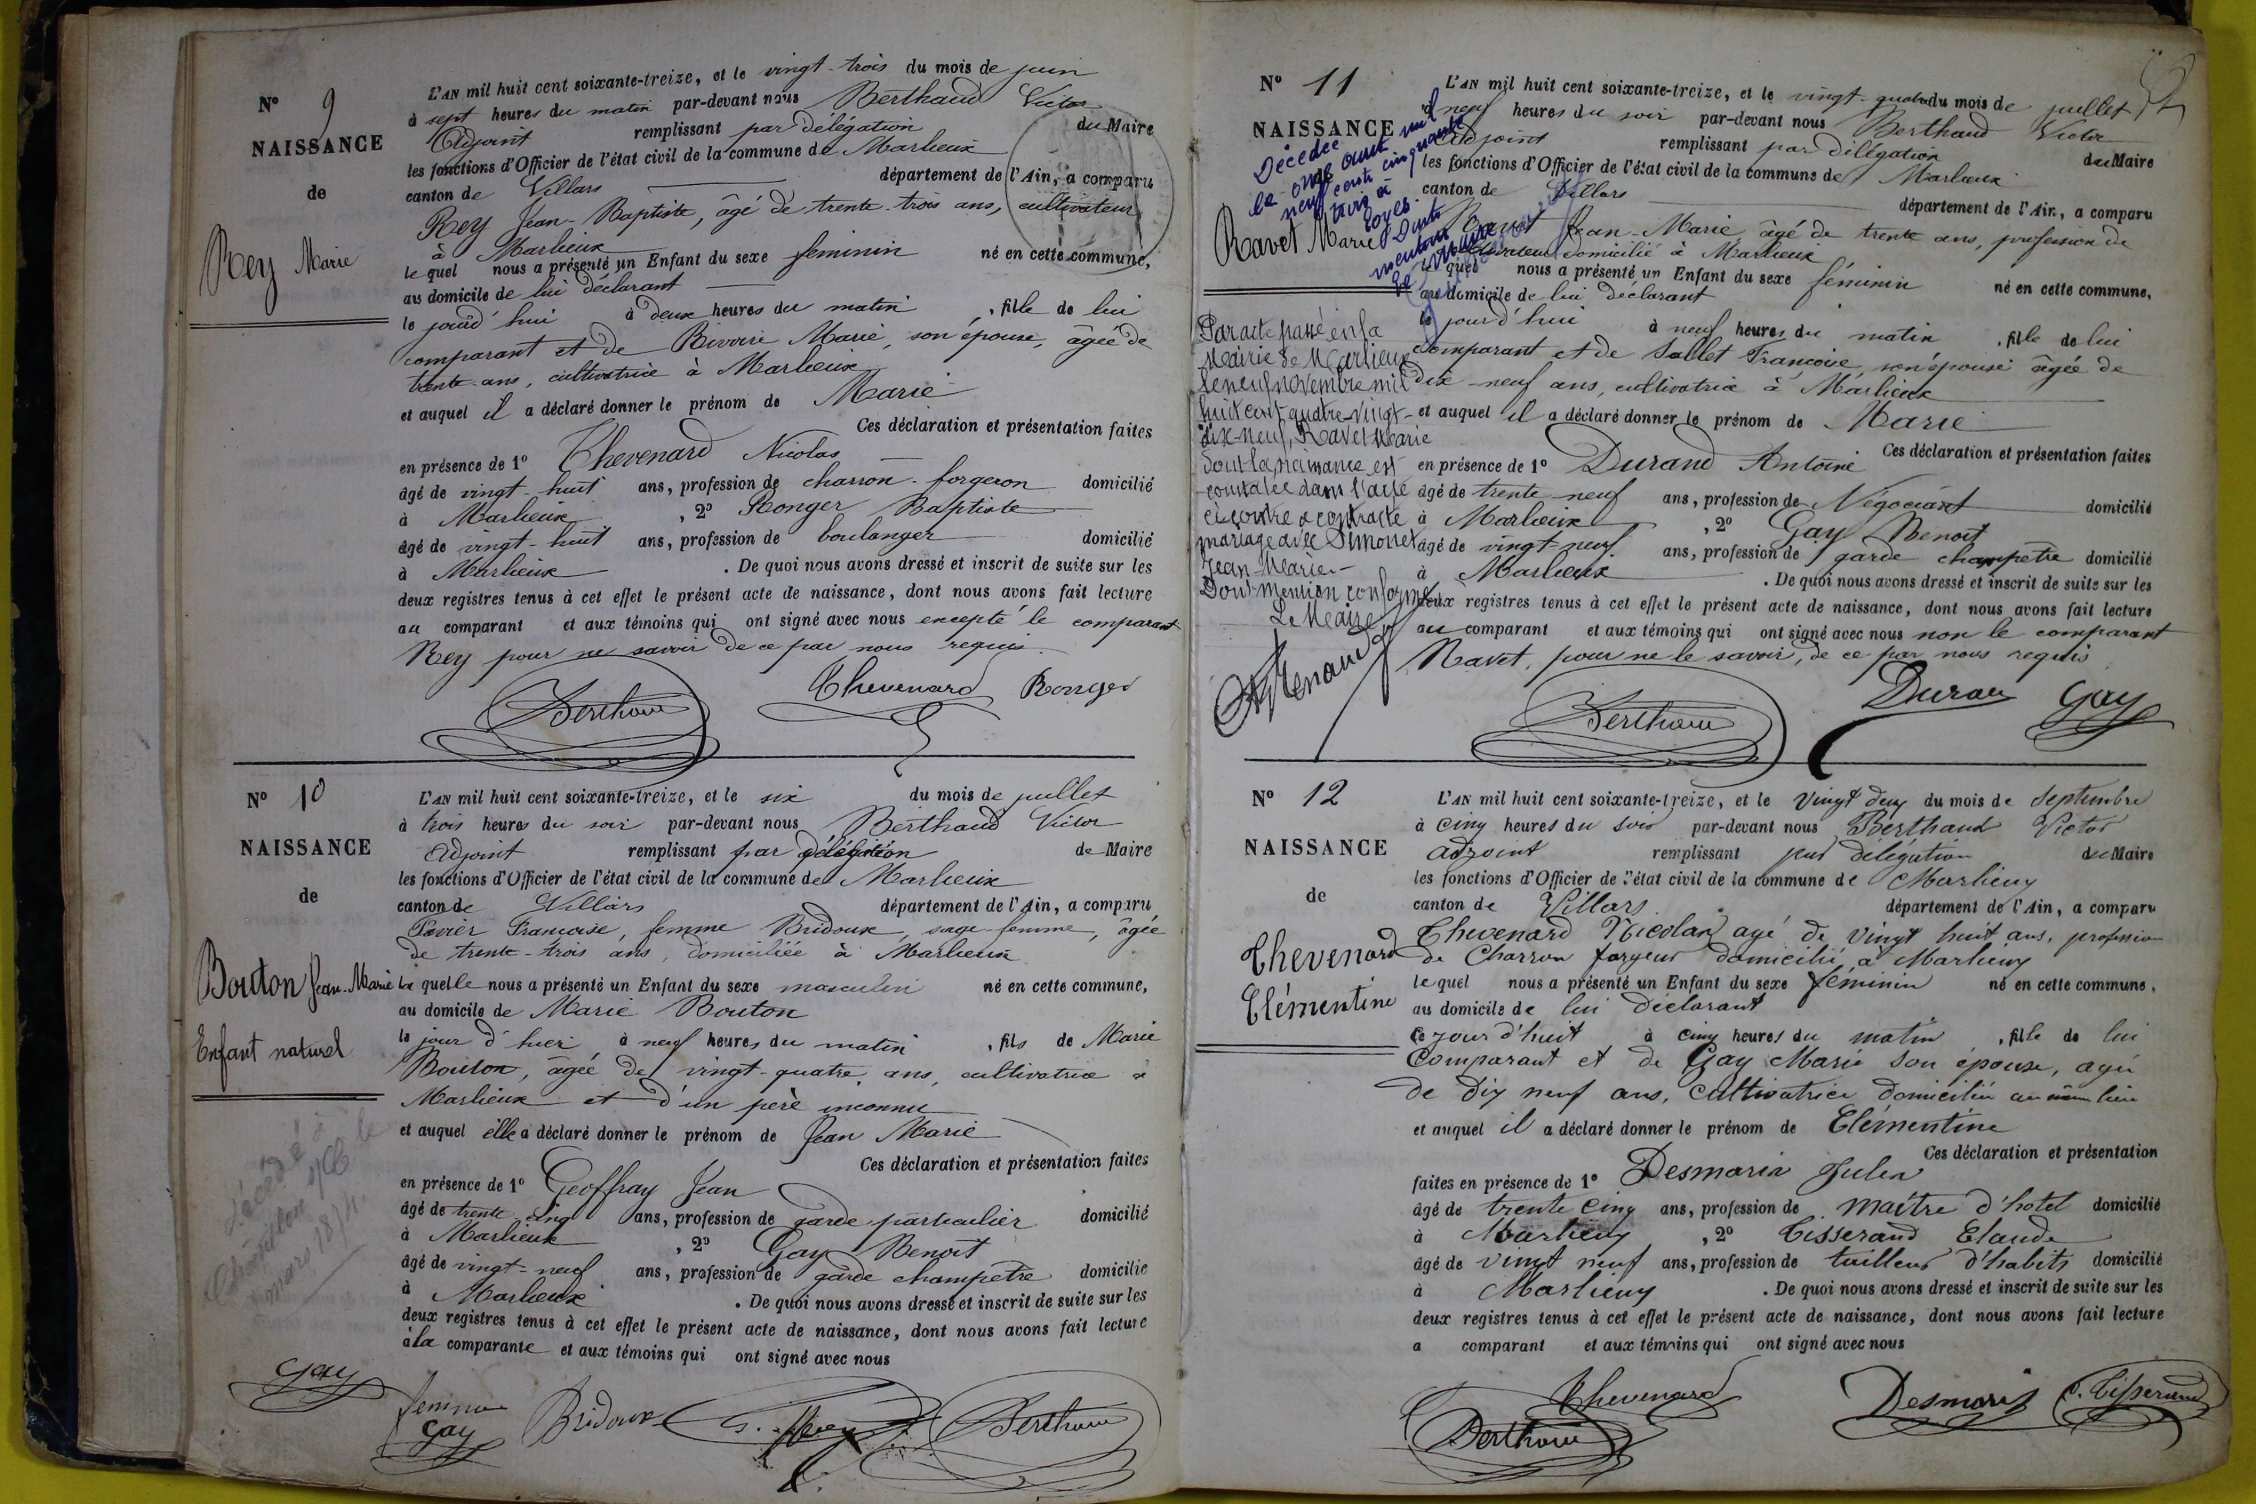 N° 9
NAISSANCE
de
Rey Marie
L'AN mil huit cent soixante-treize, et le vingt-trois du mois de juin
à sept heures du matin par-devant nous Berthaud Victor
Adjoint remplissant par délégation du Maire
les fonctions d'Officier de l'état civil de la commune de Marlieux
canton de Villars département de l'Ain, a comparu
Rey Jean-Baptiste, âgé de trente-trois ans, cultivateur
à Marlieux
le quel nous a présenté un Enfant du sexe feminin né en cette commune,
au domicile de lui déclarant
le jourd'hui à deux heures du matin, fille de lui
comparant et de Rivoire Marie, son épouse, âgée de
trente ans, cultivatrice à Marlieux
et auquel il a déclaré donner le prénom de Marie
Ces déclaration et présentation faites
en présence de 1° Thevenard Nicolas
âgé de vingt-huit ans, profession de charron-forgeron domicilié
à Marlieux, 2° Ronger Baptiste
âgé de vingt-huit ans, profession de boulanger domicilié
à Marlieux. De quoi nous avons dressé et inscrit de suite sur les
deux registres tenus à cet effet le présent acte de naissance, dont nous avons fait lecture
au comparant et aux témoins qui ont signé avec nous excepté le comparant
Rey pour ne savoir de ce par nous requis.
Berthaud Thevenard Ronger
N° 10
NAISSANCE
de
Bouton Jean-Marie
Enfant naturel
Décédé à
Châtillon s/Ch le
mars 1874
L'AN mil huit cent soixante-treize, et le six du mois de juillet
à trois heures du soir par-devant nous Berthaud Victor
Adjoint remplissant par délégation de Maire
les fonctions d'Officier de l'état civil de la commune de Marlieux
canton de Villars département de l'Ain, a comparu
Pavier Francoise, femme Bridoux, sage-femme, âgée
de trente-trois ans, domiciliée à Marlieux
la quelle nous a présenté un Enfant du sexe masculin né en cette commune,
au domicile de Marie Bouton
le jour d'hier à neuf heures du matin, fils de Marie
Bouton, âgée de vingt-quatre ans, cultivatrice à
Marlieux et d'un père inconnu
et auquel elle a déclaré donner le prénom de Jean Marie
Ces déclaration et présentation faites
en présence de 1° Geoffray Jean
âgé de trente-cinq ans, profession de garde particulier domicilié
à Marlieux, 2° Gay Benoit
âgé de vingt-neuf ans, profession de garde champêtre domicilié
à Marlieux. De quoi nous avons dressé et inscrit de suite sur les
deux registres tenus à cet effet le présent acte de naissance, dont nous avons fait lecture
à la comparante et aux témoins qui ont signé avec nous
Gay
femme
Gay Bridoux Berthaud
N° 11
NAISSANCE
Décédée
le onze aout mil
neuf cent cinquante
trois à
Loyes
Ravet Marie
Le Maire
Par acte passé en la
Mairie de Marlieux
le neuf novembre mil
huit cent quatre-vingt-
dix-neuf, Ravet Marie
dont la naissance est
constatée dans l'acte
ci-contre a contracté
mariage avec Simonet
Jean Marie.-
Dont mention conforme
Le Maire
L'AN mil huit cent soixante-treize, et le vingt-quatre du mois de juillet
à neuf heures du soir par-devant nous Berthaud Victor
Adjoint remplissant par délégation du Maire
les fonctions d'Officier de l'état civil de la commune de Marlieux
canton de Villars département de l'Ain, a comparu
Ravet Jean-Marie âgé de trente ans, profession de
cultivateur domicilié à Marlieux
le quel nous a présenté un Enfant du sexe féminin né en cette commune,
au domicile de lui déclarant
le jour d'hui à neuf heures du matin, fille de lui
comparant et de Sallet Francoise, son épouse âgée de
dix-neuf ans, cultivatrice à Marlieux
et auquel il a déclaré donner le prénom de Marie
Ces déclaration et présentation faites
en présence de 1° Durand Antoine
âgé de trente-neuf ans, profession de Négociant domicilié
à Marlieux, 2° Gay Benoit
âgé de vingt-neuf ans, profession de garde champetre domicilié
à Marlieux. De quoi nous avons dressé et inscrit de suite sur les
deux registres tenus à cet effet le présent acte de naissance, dont nous avons fait lecture
au comparant et aux témoins qui ont signé avec nous non le comparant
Ravet, pour ne le savoir, de ce par nous requis
Berthaud Durand Gay
N° 12
NAISSANCE
de
Thevenard
Clémentine
L'AN mil huit cent soixante-treize, et le vingt deux du mois de Septembre
à cinq heures du soir par-devant nous Berthaud Victor
adjoint remplissant par délégation du Maire
les fonctions d'Officier de l'état civil de la commune de Marlieux
canton de Villars département de l'Ain, a comparu
Thevenard Nicolas agé de vingt huit ans, profession
de Charron forgeur domicilié à Marlieux
le quel nous a présenté un Enfant du sexe féminin né en cette commune,
au domicile de lui déclarant
ce jour d'huit à cinq heures du matin, fille de lui
comparant et de Gay Marie son épouse, agée
de dix neuf ans, cultivatrice domiciliée au même lieu
et auquel il a déclaré donner le prénom de Clémentine
Ces déclaration et présentation
faites en présence de 1° Desmaris Jules
âgé de trente cinq ans, profession de maître d'hotel domicilié
à Marlieux, 2° Tisserand Claude
âgé de vingt neuf ans, profession de tailleur d'habits domicilié
à Marlieux. De quoi nous avons dressé et inscrit de suite sur les
deux registres tenus à cet effet le présent acte de naissance, dont nous avons fait lecture
a comparant et aux témoins qui ont signé avec nous
Thevenard Desmaris C. Tisserand
Berthaud